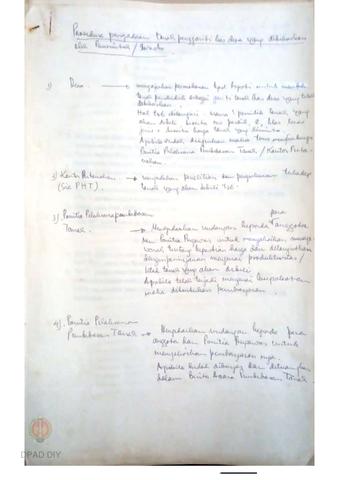 Prosedur pengadaan tanah pengganti kas desa yang dibebaskan
oleh Pemerintah / Swasta
1) Desa - mengajukan permohonan kpd Bupati untuk membeli
tanah penduduk sebagai tanah kas desa yang telah
dibebaskan.
Hal tsb dilampiri nama pemilik tanah yang
akan dibeli beserta no persil, luas
beserta harga tanah yang diminta.
Apabila sudah, diajukan
Panitia Pelaksana Pembebasan Tanah / Kantor Perta-
nahan.
2) Kantor Pertanahan - mengadakan penelitian dan pengukuran terhadap
(Sie PHT) tanah yang akan dibeli tsb.
3) Panitia Pelaksana pembebasan
Tanah - Mengadakan undangan kepada para anggota
dan Panitia Pengawas untuk mengadakan
tentang kepastian harga dan
mengenai produktivitas /
letak tanah yang akan dibeli.
Apabila telah terjadi kesepakatan
maka dilakukan pembayaran.
4) Panitia Pelaksana
Pembebasan Tanah - Mengadakan undangan kepada para
anggota dan Panitia Pengawas untuk
menyaksikan pembayaran nya.
Apabila sudah dibayar dan dituangkan
dalam Berita Acara Pembebasan Tanah
DPAD DIY